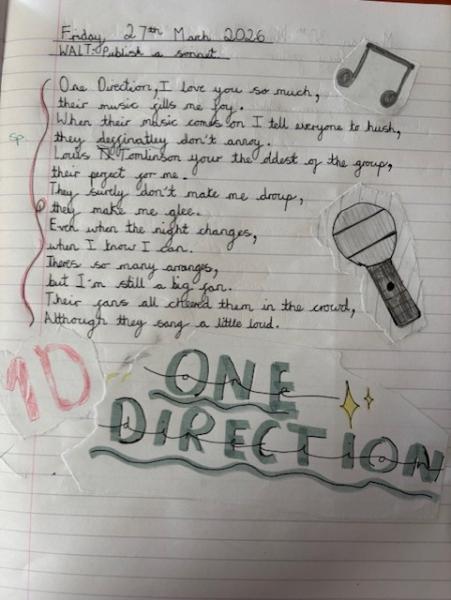 Friday 27th March 2026
WALT: Publish a sonnet.
One Direction, I love you so much,
their music fills me joy.
When their music comes on I tell everyone to hush,
sp.
they deffinatley don't annoy.
Louis Tomlinson your the oldest of the group,
their perfect for me.
They surely don't make me droup,
they make me glee.
Even when the night changes,
when I know I can.
Theres so many arranges,
but I'm still a big fan.
Their fans all cheered them in the crowd,
Although they sang a little loud.
1D
ONE
DIRECTION